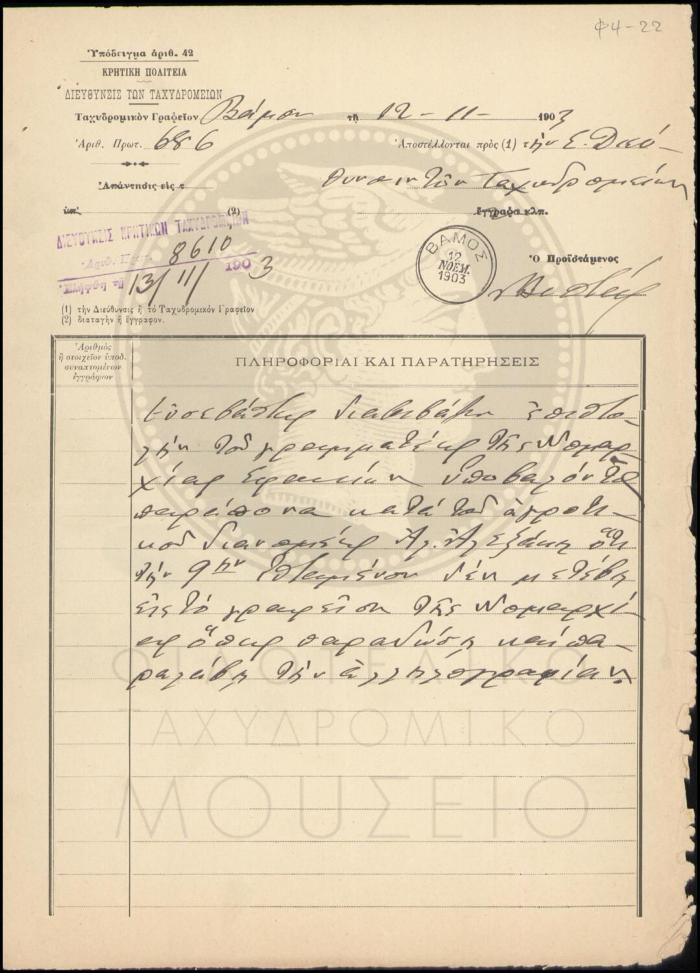 φ4-22
Ὑπόδειγμα ἀριθ. 42
ΚΡΗΤΙΚΗ ΠΟΛΙΤΕΙΑ
ΔΙΕΥΘΥΝΣΙΣ ΤΩΝ ΤΑΧΥΔΡΟΜΕΙΩΝ
Ταχυδρομικὸν Γραφεῖον Βάμου τῇ 12-11- 1903
Ἀριθ. Πρωτ. 686 Ἀποστέλλονται πρὸς (1) τὴν Σ. Διεύ-
θυνσιν τῶν Ταχυδρομείων
Ἀπάντησις εἰς τ
ὑπ (2) ἔγγραφα κλπ.
ΔΙΕΥΘΥΝΣΙΣ ΚΡΗΤΙΚΩΝ ΤΑΧΥΔΡΟΜΕΙΩΝ
Ἀριθ. Πρωτ. 8610
13/11/ 1903
ΒΑΜΟΣ
12
ΝΟΕΜ.
1903
Ὁ Προϊστάμενος
(1) τὴν Διεύθυνσις ἢ τὸ Ταχυδρομικὸν Γραφεῖον
(2) διαταγὴν ἢ ἔγγραφον.
Ἀριθμὸς
ἢ στοιχεῖον ὑποδ.
συναπτομένων
ἐγγράφων
ΠΛΗΡΟΦΟΡΙΑΙ ΚΑΙ ΠΑΡΑΤΗΡΗΣΕΙΣ
Εὐσεβάστως διαβιβάζω ἐπιστο-
λὴν τοῦ γραμματέως τῆς Νομαρ-
χίας Σφακίων ὑποβαλόντος
παράπονα κατὰ τοῦ ἀγροτι-
κοῦ διανομέως Ἀλ. Ἀλεξάκη ὅτι
τὴν 9ην ἱσταμένου δὲν μετέβη
εἰς τὸ γραφεῖον τῆς Νομαρχί-
ας ὅπως παραδώσῃ καὶ πα-
ραλάβῃ τὴν ἀλληλογραφίαν.
ΦΙΛΟΤΕΛΙΚΟ
ΤΑΧΥΔΡΟΜΙΚΟ
ΜΟΥΣΕΙΟ